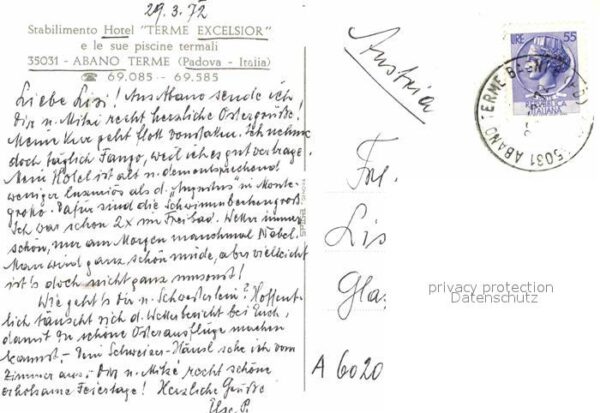 29.3.72
Stabilimento Hotel "TERME EXCELSIOR"
e le sue piscine termali
35031 - ABANO TERME (Padova - Italia)
☎ 69.085 - 69.585
Liebe Lisi! Aus Abano sende ich
Dir u. Mitzi recht herzliche Ostergrüße!
Meine Kur geht flott vonstatten. Ich nehme
doch täglich Fango, weil ich es gut vertrage.
Mein Hotel ist alt u. dementsprechend
weniger luxuriös als d. "Augustus" in Monte-
grotto. Dafür sind die Schwimmbecken groß.
Ich war schon 2x im Freibad. Wetter immer
schön, nur am Morgen manchmal Nebel.
Man wird ganz schön müde, aber vielleicht
ist's doch nicht ganz umsonst!
Wie geht's Dir u. Schwesterlein? Hoffent-
lich täuscht sich d. Wetterbericht bei Euch,
damit Du schöne Osterausflüge machen
kannst. - Dein Schweizer-Häusl sehe ich vom
Zimmer aus. - Dir u. Mitzi recht schöne
erholsame Feiertage! Herzliche Grüße
P.
Austria
Frl.
Lis
Gla
A 6020
LIRE 55
REPUBBLICA
ITALIANA
ABANO TERME
privacy protection
Datenschutz